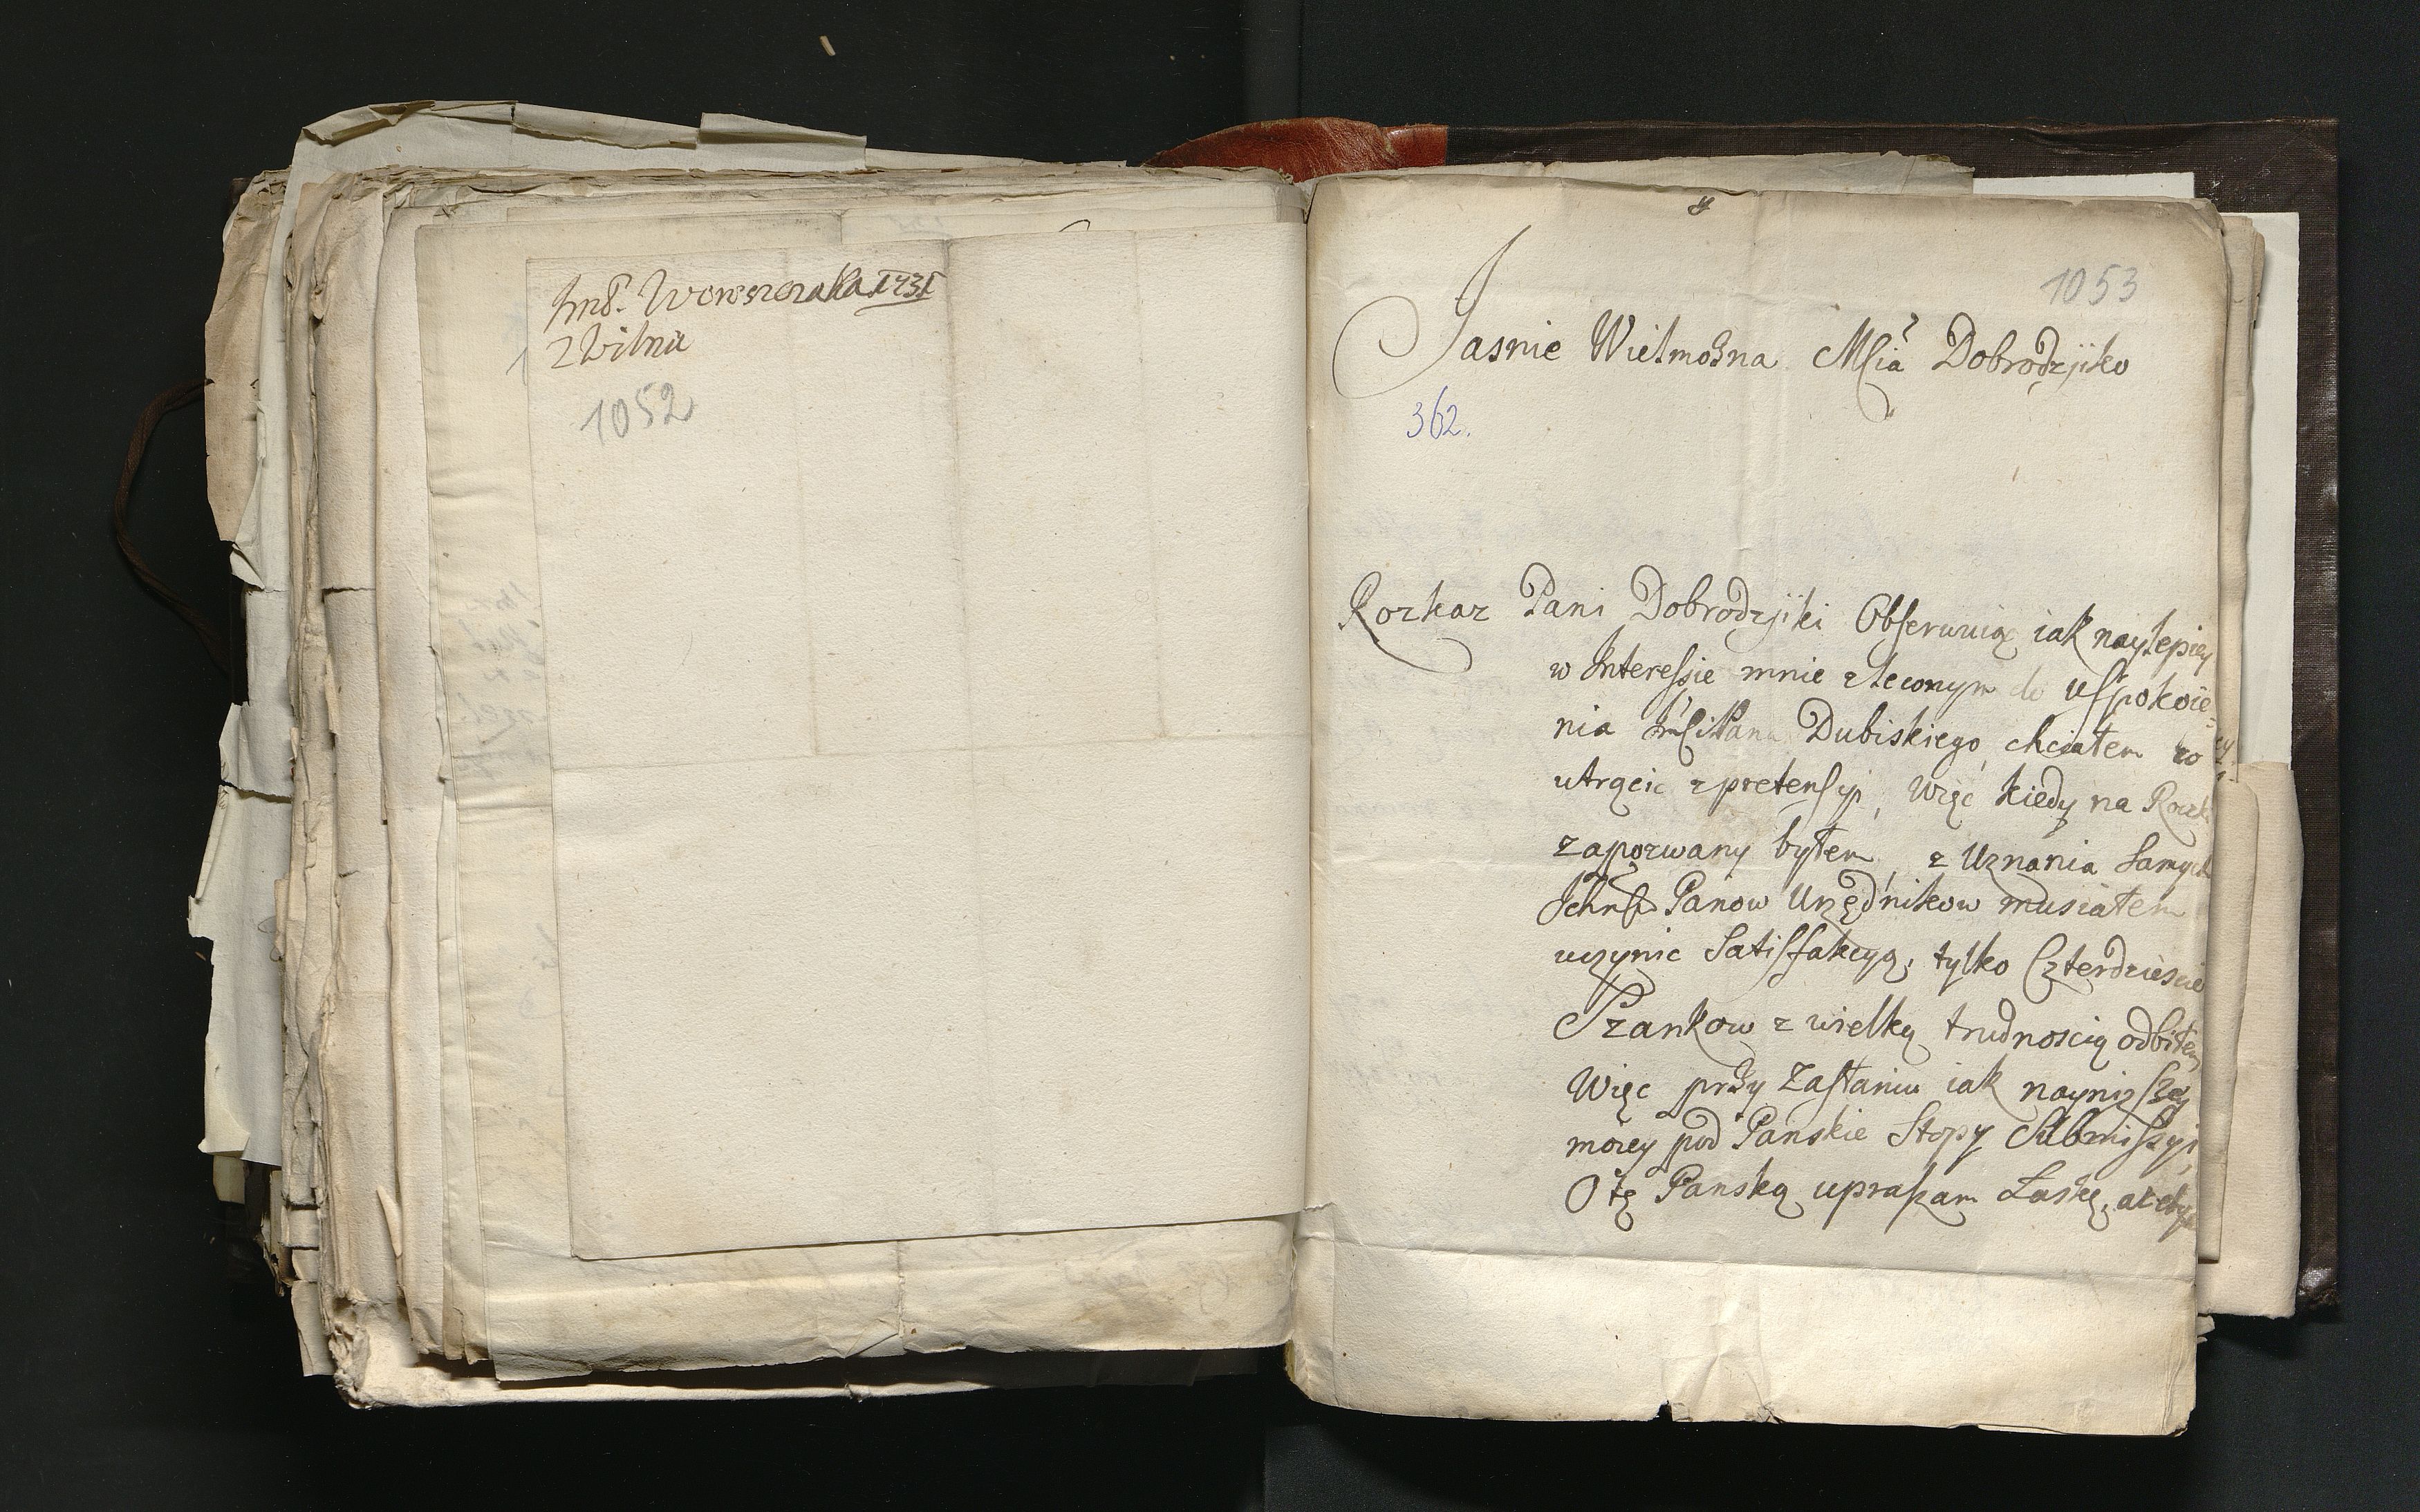 Wowszczaka 1731
z Wilna
1052
1053
Jasnie Wielmożna Mscia Dobrodzjiko
362.
Rozkaz Pani Dobrodzjiki Obserwuiąc iak naylepiey
w Interessie mnie zleconym do uspokoie=
nia Dubiskiego, chciałem co
utrącic z pretensyi, Więc kiedy na Roczki
zapozwany byłem, z Uznania Samych
Ichmsc Panow Urzędnikow musiałem
uczynic Satisfakcyą, tylko Czterdziescie
Szankow z wielką trudnoscią odbiłem,
Więc przy Zasłaniu iak naynizszey
moiey pod Panskie Stopy Submissyi,
O tę Panską upraszam Łaskę, ażebym